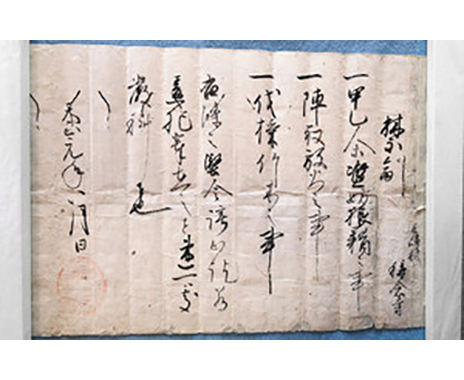 禁制
称念寺
一甲乙人等濫妨狼藉之事
一陣取放火之事
一伐採竹木之事
右條々堅令停止訖若
違犯輩在之者
厳科者也
天正元年八月日